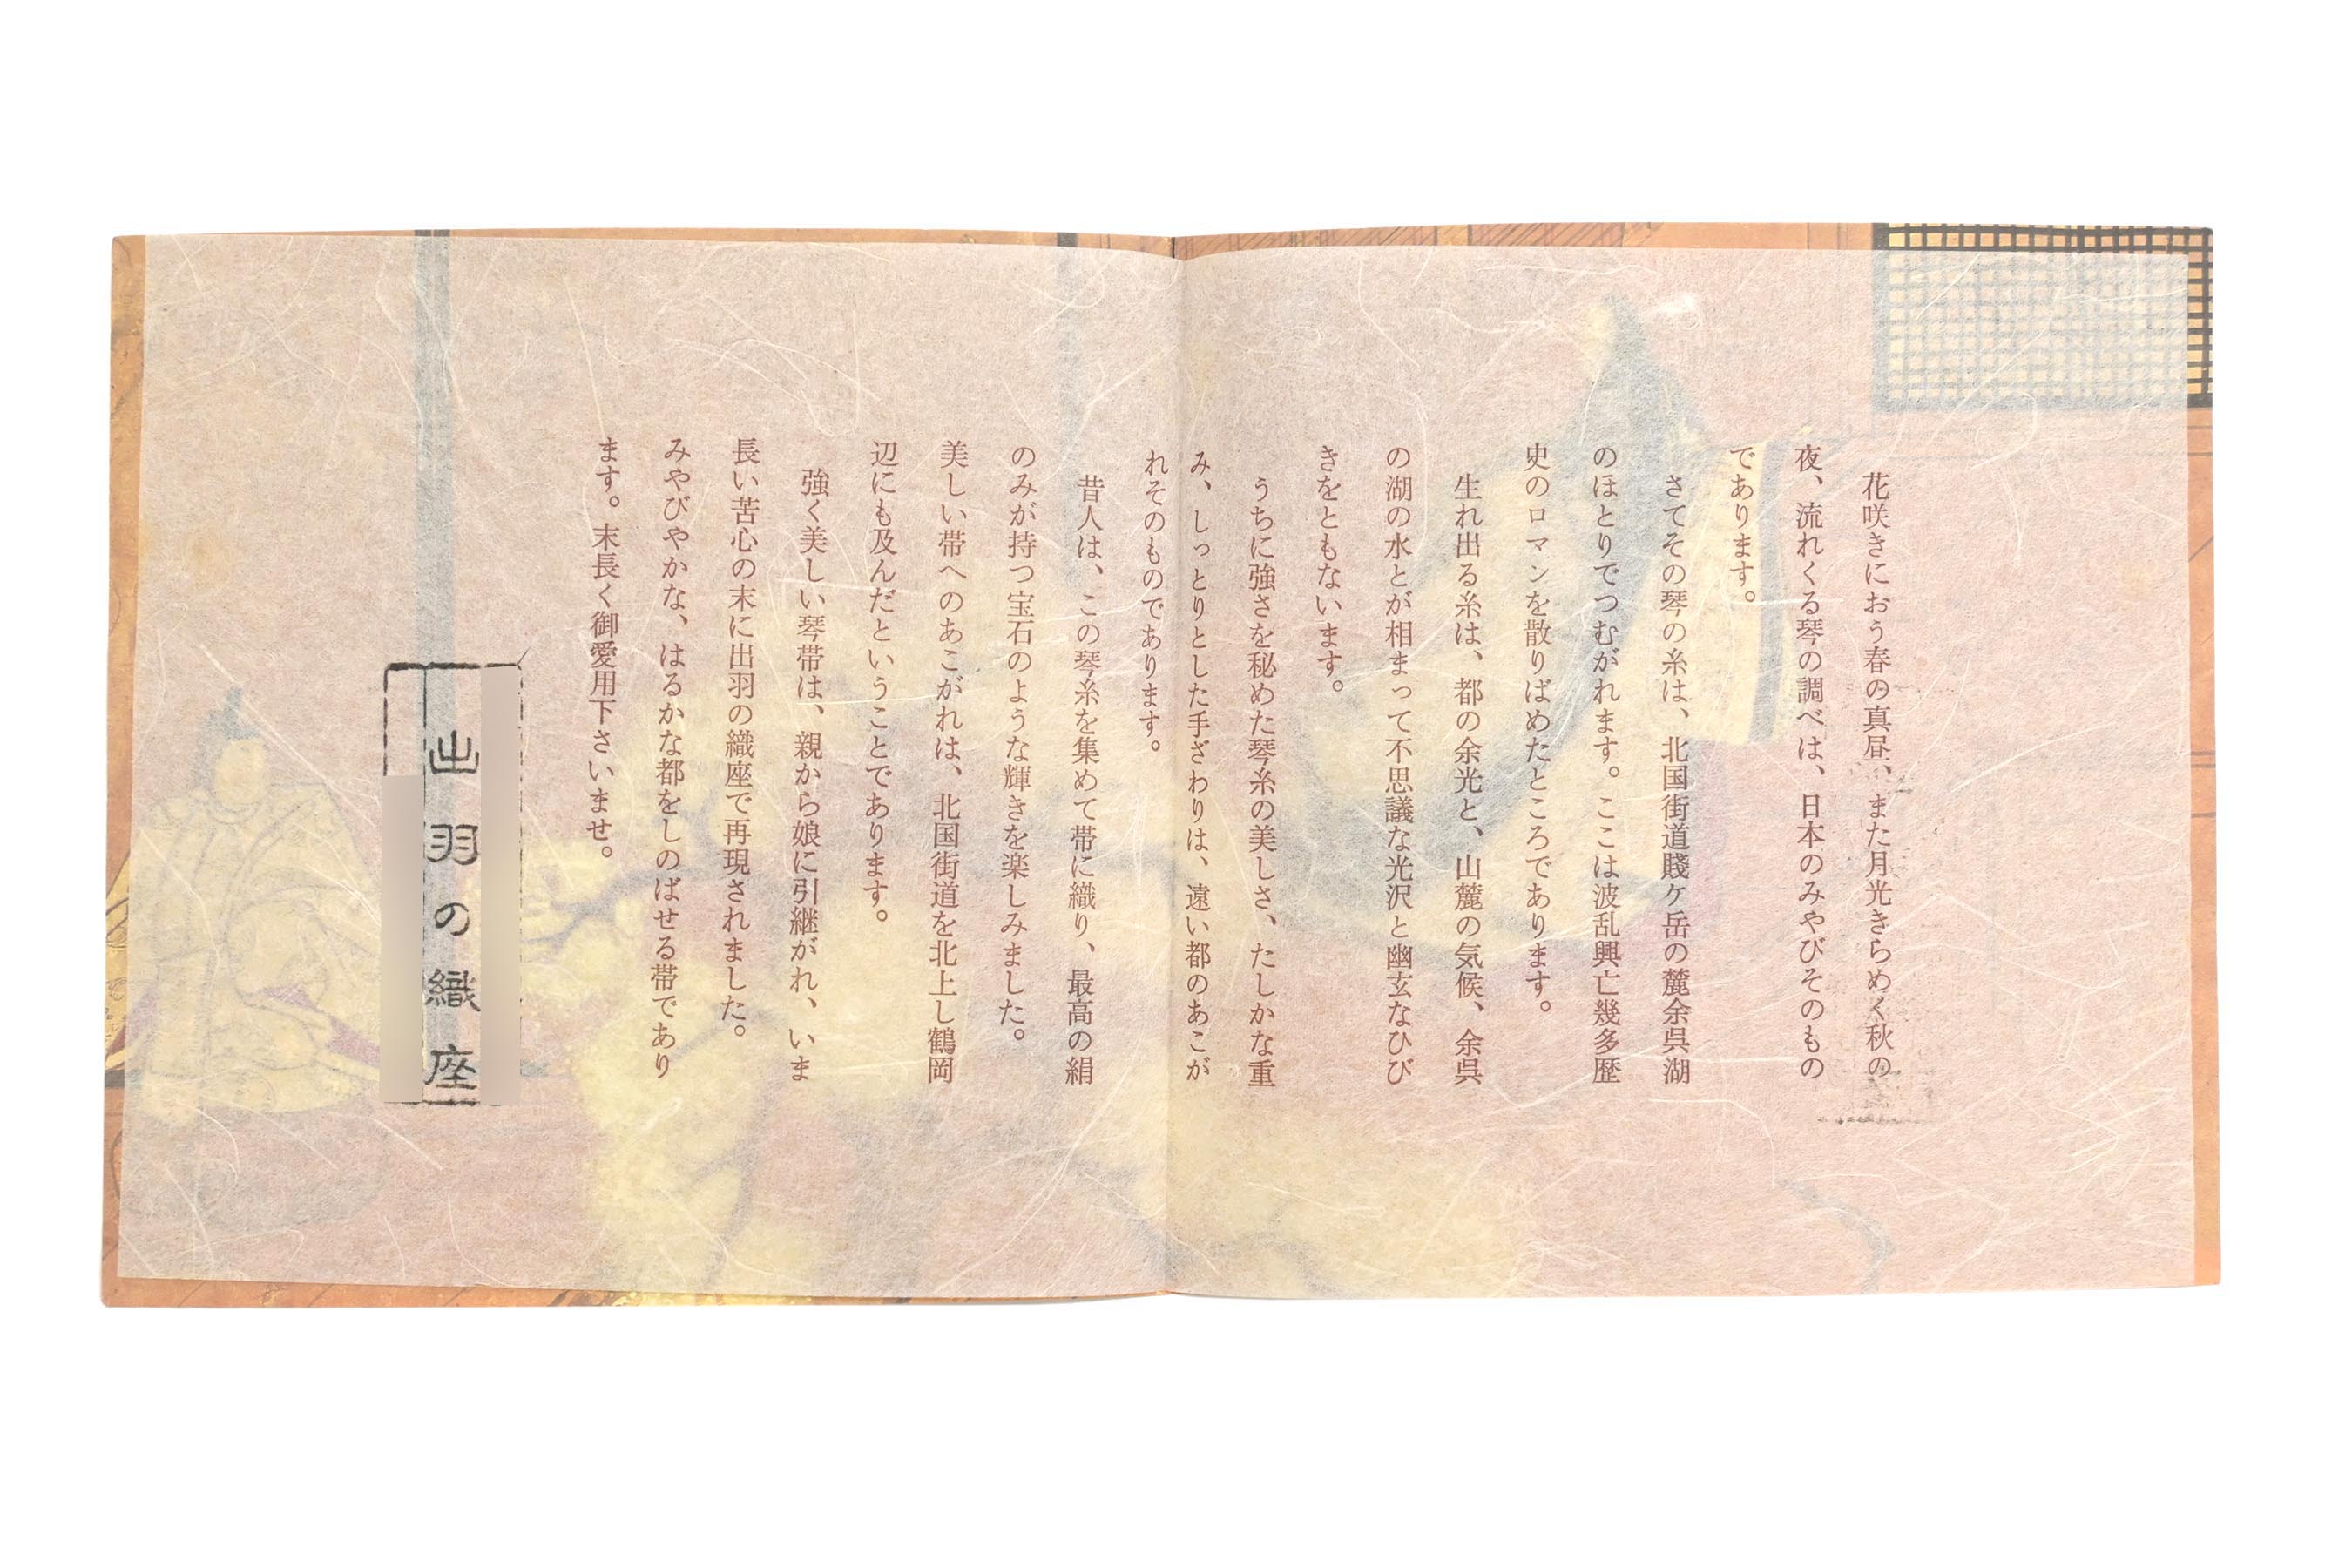 花咲きにおう春の真昼、また月光きらめく秋の
夜、流れくる琴の調べは、日本のみやびそのもの
であります。
さてその琴の糸は、北国街道賤ケ岳の麓余呉湖
のほとりでつむがれます。ここは波乱興亡幾多歴
史のロマンを散りばめたところであります。
生れ出る糸は、都の余光と、山麓の気候、余呉
の湖の水とが相まって不思議な光沢と幽玄なひび
きをともないます。
うちに強さを秘めた琴糸の美しさ、たしかな重
み、しっとりとした手ざわりは、遠い都のあこが
れそのものであります。
昔人は、この琴糸を集めて帯に織り、最高の絹
のみが持つ宝石のような輝きを楽しみました。
美しい帯へのあこがれは、北国街道を北上し鶴岡
辺にも及んだということであります。
強く美しい琴帯は、親から娘に引継がれ、いま
長い苦心の末に出羽の織座で再現されました。
みやびやかな、はるかな都をしのばせる帯であり
ます。末長く御愛用下さいませ。
出羽の織座